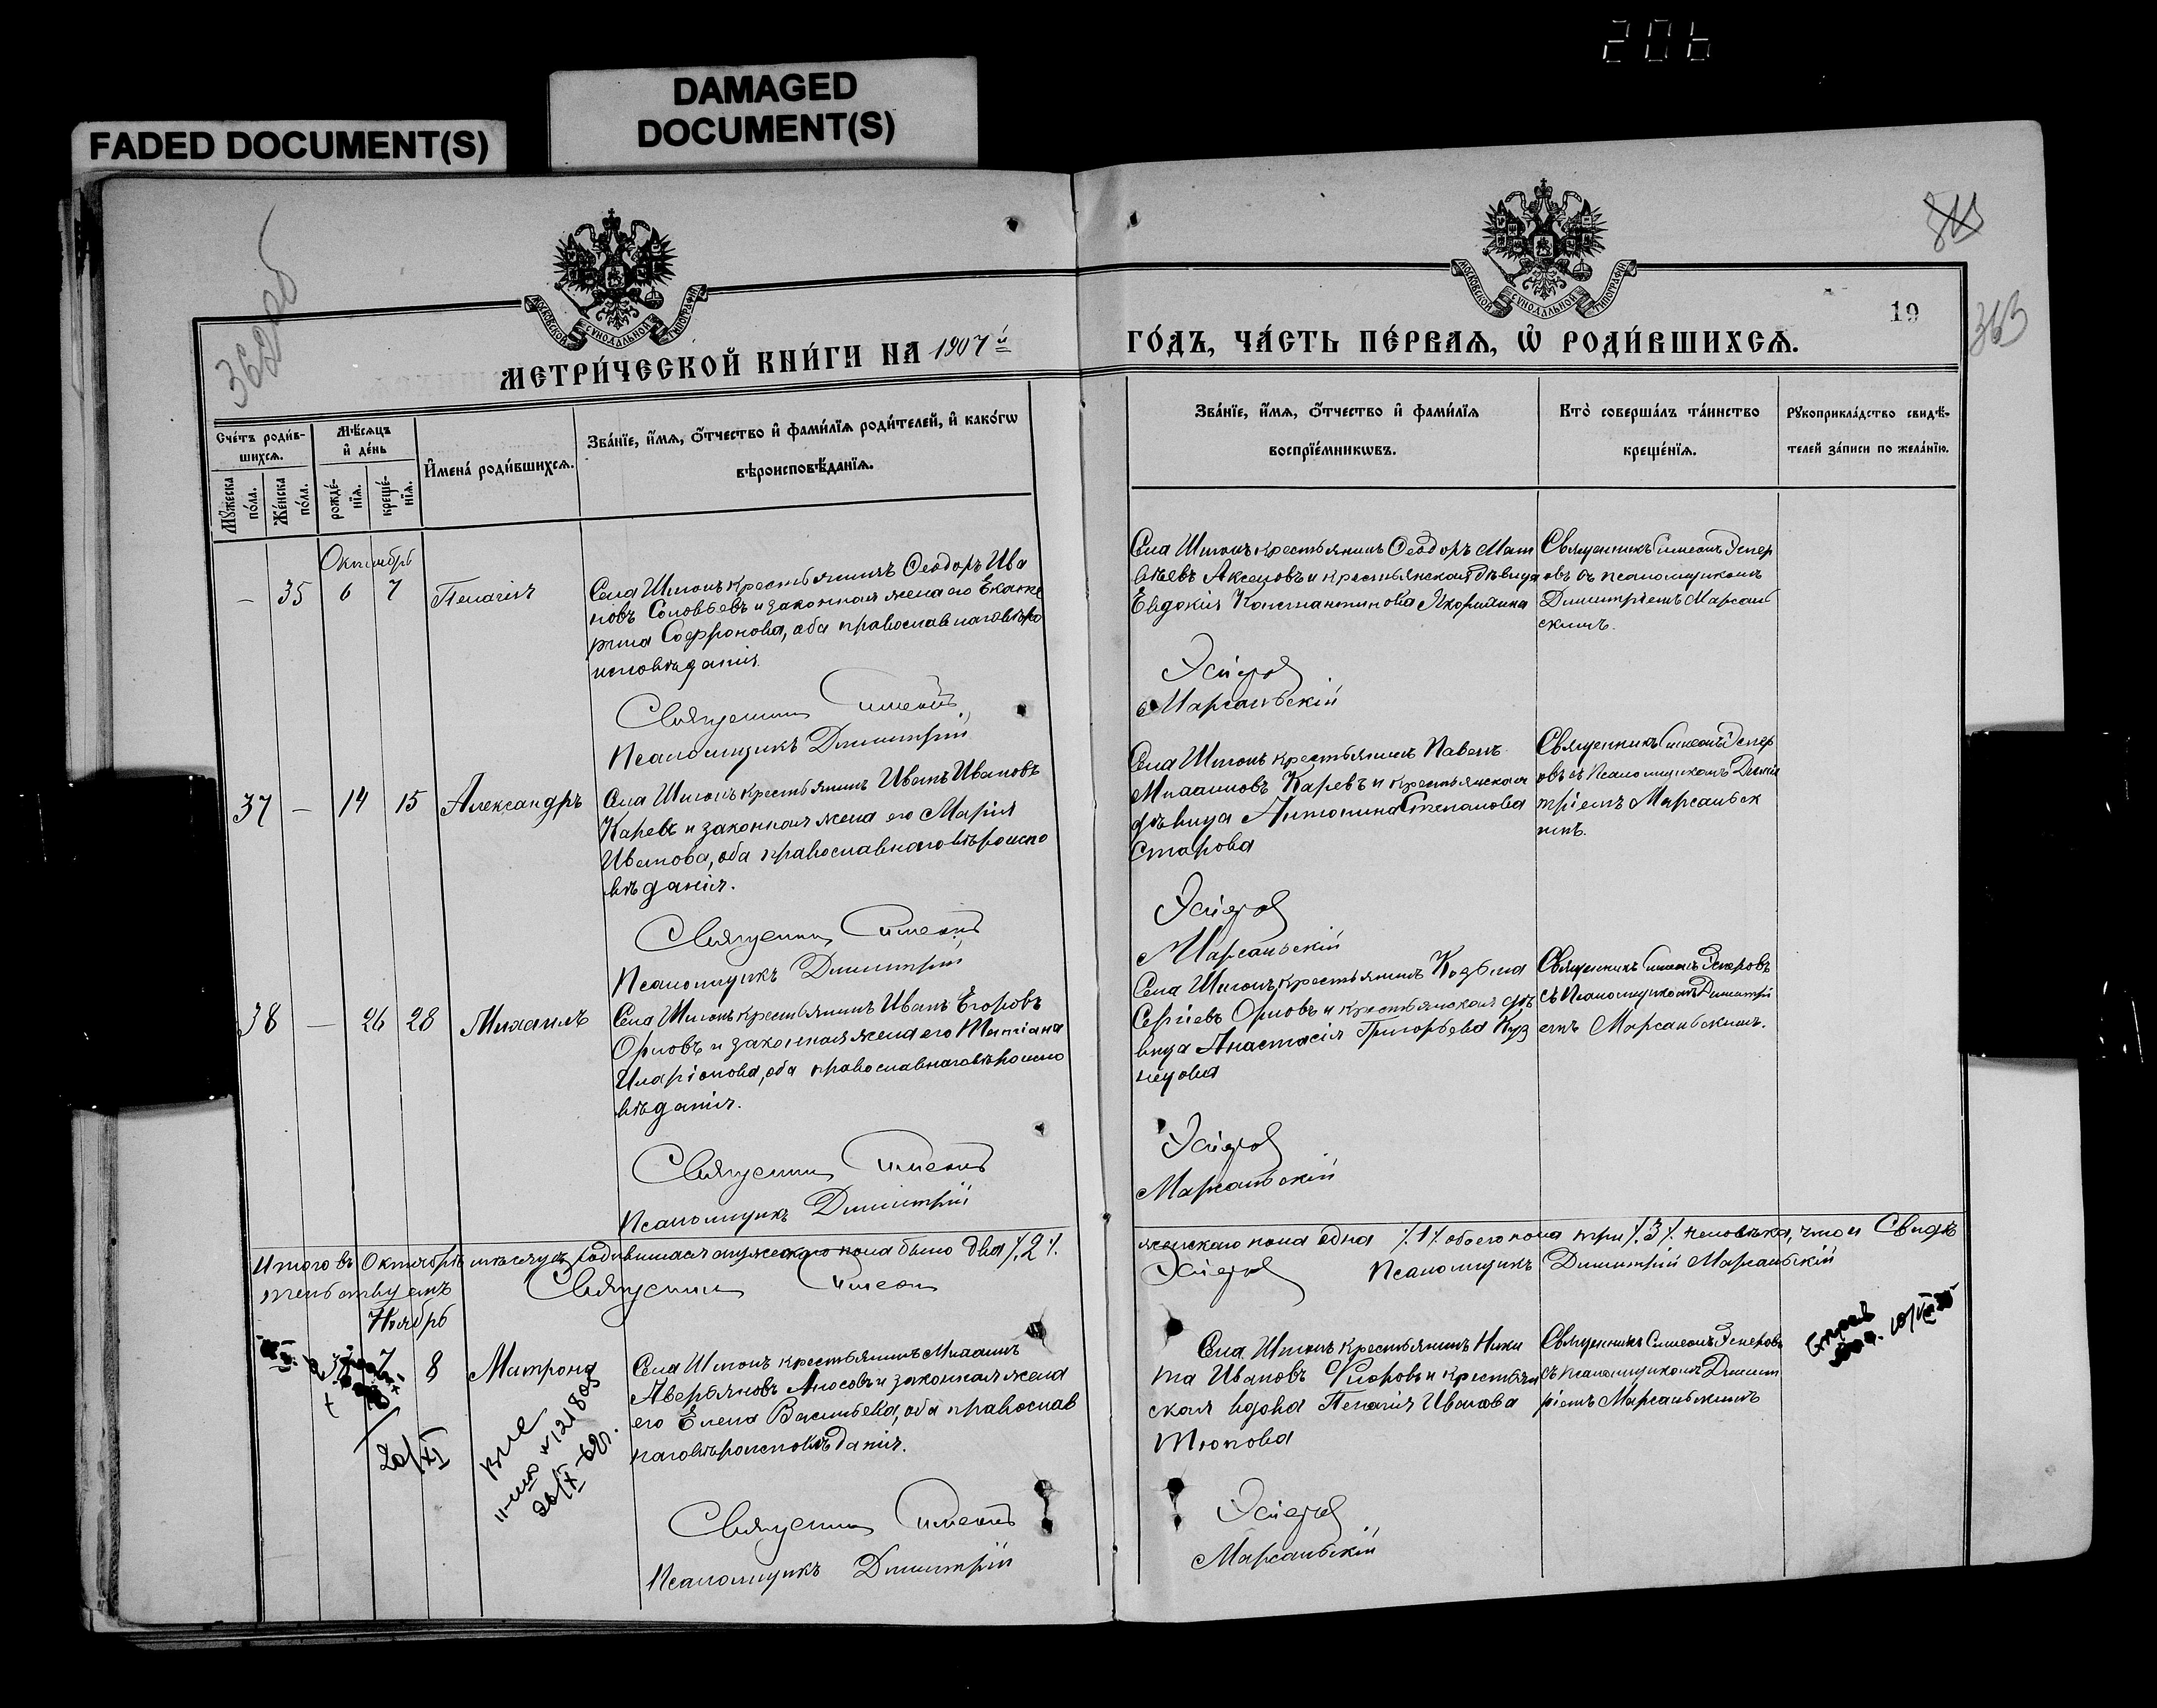 206
DAMAGED
DOCUMENT(S)
FADED DOCUMENT(S)
363
19
МОСКОВСКОЙ СѴНОДАЛЬНОЙ ТИПОГРАФІИ
МОСКОВСКОЙ СѴНОДАЛЬНОЙ ТИПОГРАФІИ
МЕТРИ́ЧЕСКОЙ КНИ́ГИ НА 1907й
ГО́ДЪ, ЧА́СТЬ ПЕ́РВАѦ, Ѡ҆ РОДИ́ВШИХСѦ.
Сче́тъ роди́в-
шихсѧ.
Мꙋ́жеска по́ла.
Же́нска по́ла.
Мѣ́сѧцъ
и҆ де́нь
рожде́-
нїѧ.
креще́-
нїѧ.
И҆мена̀ роди́вшихсѧ.
Зва́нїе, и҆́мѧ, ѻ҆́тчество и҆ фами́лїѧ роди́телей, и҆ како́гѡ
вѣроисповѣ́данїѧ.
Зва́нїе, и҆́мѧ, ѻ҆́тчество и҆ фами́лїѧ
воспрїе́мникѡвъ.
Кто̀ соверша́лъ та́инство
креще́нїѧ.
Рꙋкоприкла́дство свидѣ́-
телей за́писи по жела́нїю.
Октябрь
— 35 6 7 Пелагія
Села Шигонъ крестьянинъ Ѳеодоръ Ива
новъ Соловьевъ и законная жена его Екате
рина Софронова, оба православнаго вѣро
исповѣданія.
Священник Симеонъ
Псаломщикъ Димитрій
Села Шигонъ крестьянинъ Ѳеодоръ Мат
вѣевъ Аксеновъ и крестьянская дѣвица
Евдокія Константинова
Эсперов
Марсальскій
Священникъ Симеонъ Эспер
овъ съ псаломщикомъ
Димитріемъ Марсаль
скимъ.
37 — 14 15 Александръ
Села Шигонъ крестьянинъ Иванъ Ивановъ
Каревъ и законная жена его Марія
Иванова, оба православнаго вѣроиспо
вѣданія.
Священник Симеонъ
Псаломщикъ Димитрій
Села Шигонъ крестьянинъ Павелъ
Михаиловъ Каревъ и крестьянская
дѣвица Антонина Степанова
Старова
Эсперов
Марсальскій
Священникъ Симеонъ Эспер
овъ съ Псаломщикомъ Дими
тріемъ Марсальск
имъ.
38 — 26 28 Михаилъ
Села Шигонъ крестьянинъ Иванъ Егоровъ
Орловъ и законная жена его Татіана
Иларіонова, оба православнаго вѣроиспо
вѣданія.
Священник Симеонъ
Псаломщикъ Димитрій
Села Шигонъ крестьянинъ Козьма
Сергіевъ Орловъ и крестьянская дѣ
вица Анастасія Григорьева Куз
нецова
Эсперов
Марсальскій
Священникъ Симеонъ Эсперовъ
съ Псаломщикомъ Димитрі
емъ Марсальскимъ.
Итого въ Октябрѣ мѣсяцѣ родившихся мужескаго пола было два /.2/.
женскаго пола одна /.1/. обоего пола три /.3/. человѣка, что и Свидѣ
тельствуемъ Священник Симеон
Эсперов Псаломщикъ Димитрій Марсальскій
Ноябрь
7 8 Матрона
Села Шигонъ крестьянинъ Михаилъ
Аверьяновъ Аносовъ и законная жена
его Елена Васильева, оба православ
наго вѣроисповѣданія.
20/XI
Священник Симеонъ
Псаломщикъ Димитрій
Села Шигонъ крестьянинъ Ники
та Ивановъ и крестьян
ская вдова Пелагія Иванова
Тюпова
Эсперов
Марсальскій
Священникъ Симеонъ Эсперовъ
съ псаломщикомъ Димит
ріемъ Марсальскимъ